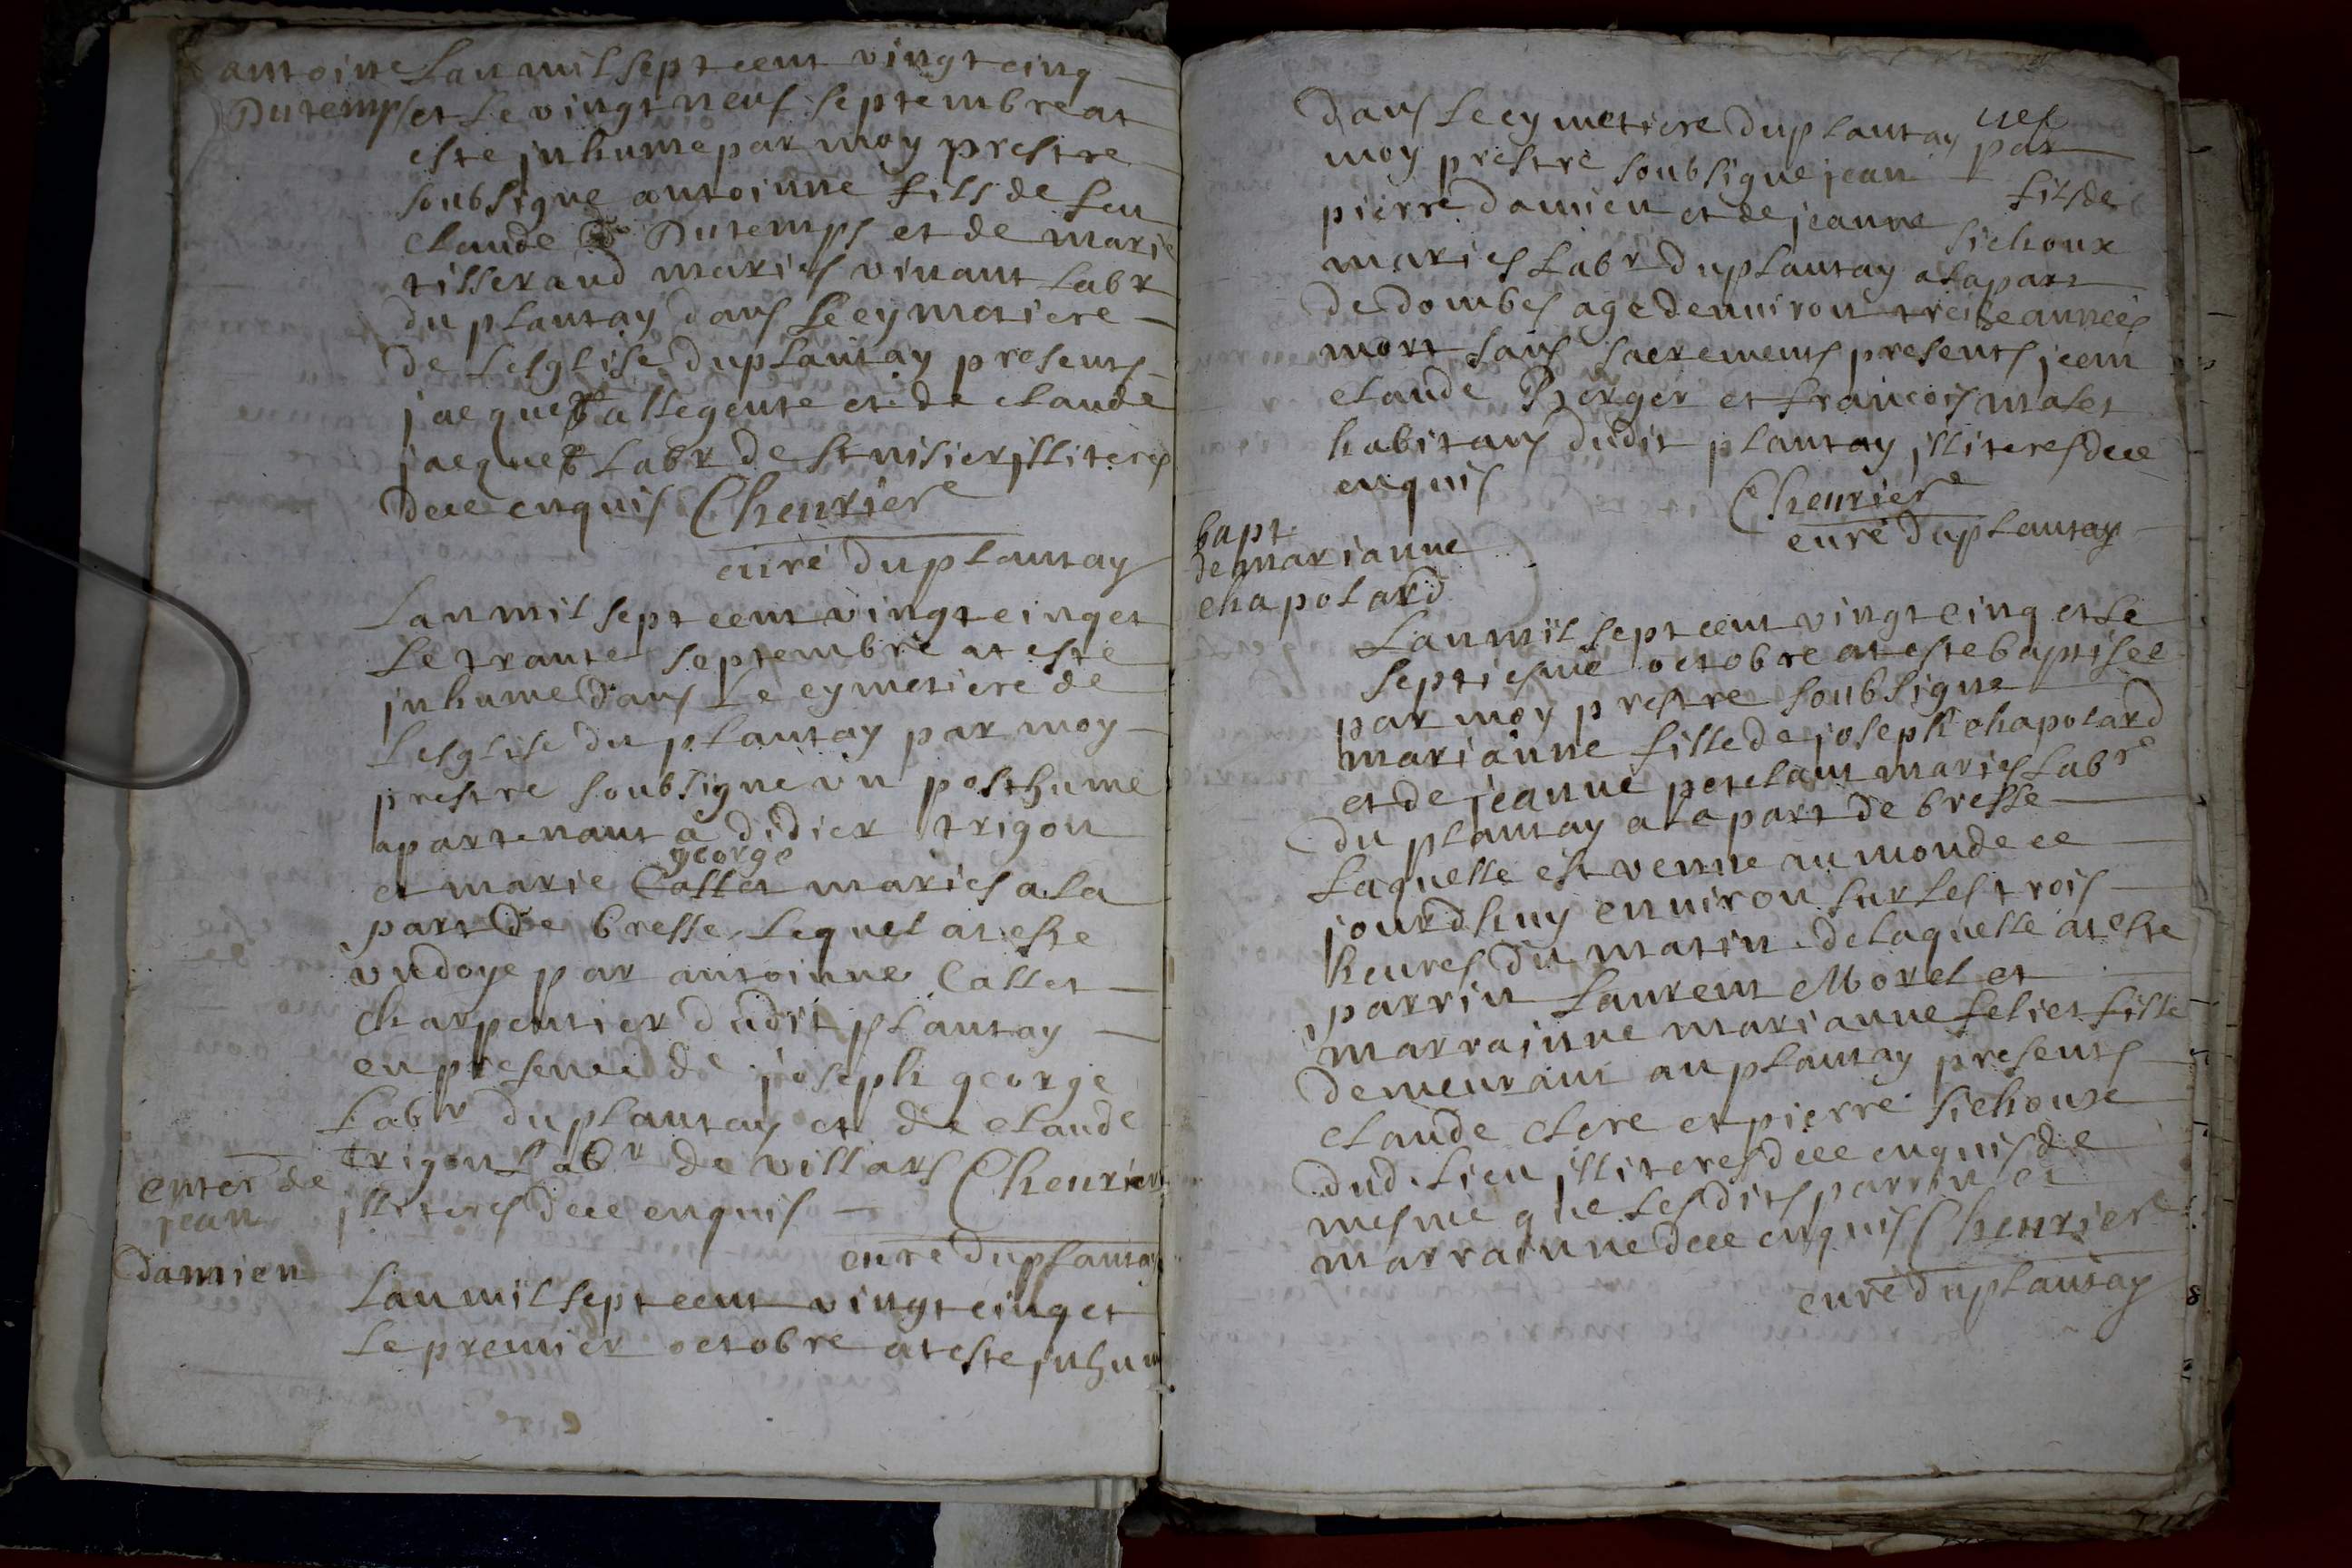 antoine Lan mil sept cent vingt cinq
Dutemps et le vingt neuf septembre at
este inhume par moy prestre
soubsigne antoinne fils de feu
claude Dutemps et de marie
tisserand maries vivant labr
du plantay dans le cymetiere
de lesglise du plantay presents
jacque ballegente et de claude
jacque labr de st nisier illiteres
dece enquis Chevrier
curé du plantay
Lan mil sept cent vingt cinq et
le trante septembre at este
inhume dans le cymetiere de
lesglise du plantay par moy
prestre soubsigné un posthume
apartenant a didier trigon
george
et marie Callet maries a la
part de bresse lequel at este
undoye par antoinne Callet
charpentier dudit plantay
en presence de joseph george
labr du plantay et de claude
trigon labr de villars Chevrier
illiteres dece enquis
curé du plantay
enter de
jean
damien
Lan mil sept cent vingt cinq et
le premier octobre at este inhum
dans le cymetiere du plantay par
moy prestre soubsigne jean fils de
pierre damien et de jeanne sichoux
maries labr du plantay a la part
de dombes age denviron treize années
mort sans sacrements presents
claude Berger et francois malet
habitans dudit plantay illiteres dece
enquis
Chevrier
curé du plantay
bapt
de marianne
chapolard
Lan mil sept cent vingt cinq et le
septiesme octobre at este baptisee
par moy prestre soubsigne
marianne fille de joseph chapolard
et de jeanne poselant maries labr
du plantay a la part de bresse
laquelle est venue au monde ce
jourdhuy environ sur les trois
heures du matin de laquelle at este
parrin laurent Morel et
marrainne marianne feliet fille
demeurant au plantay presents
claude clere et pierre sichoux
dud. lieu illiteres dece enquis de
mesme que lesdits parrin et
marrainne dece enquis Chevrier
curé du plantay